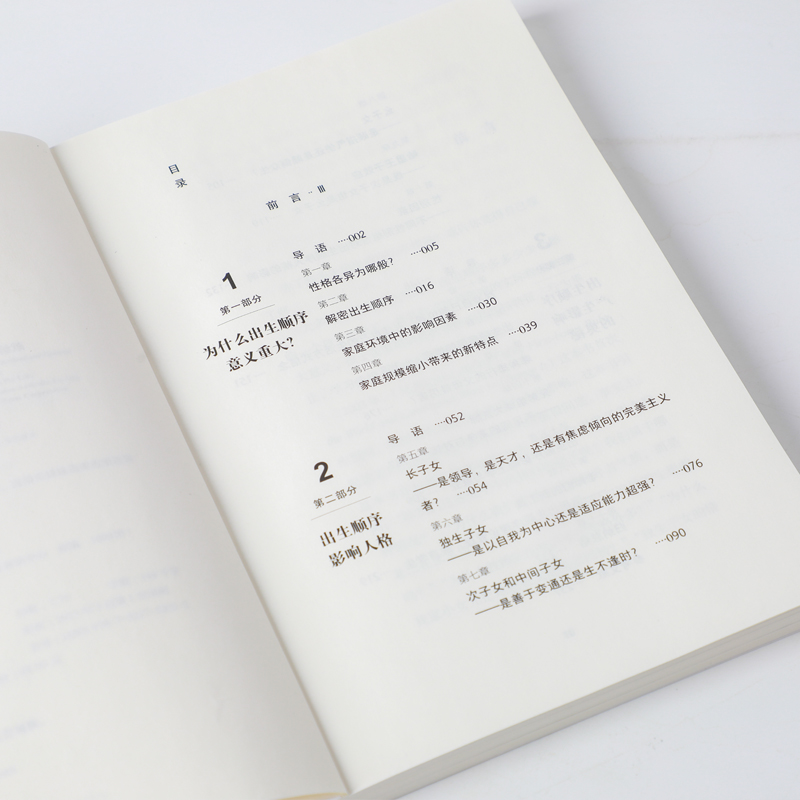 目
录
前 言 ·· III
1
第一部分
为什么出生顺序
意义重大?
导 语 ····002
第一章
性格各异为哪般? ····005
第二章
解密出生顺序 ····016
第三章
家庭环境中的影响因素 ····030
第四章
家庭规模缩小带来的新特点 ····039
2
第二部分
出生顺序
影响人格
导 语 ····052
第五章
长子女
——是领导,是天才,还是有焦虑倾向的完美主义
者? ····054
第六章
独生子女
——是以自我为中心还是适应能力超强? ····076
第七章
次子女和中间子女
——是善于变通还是生不逢时? ····090